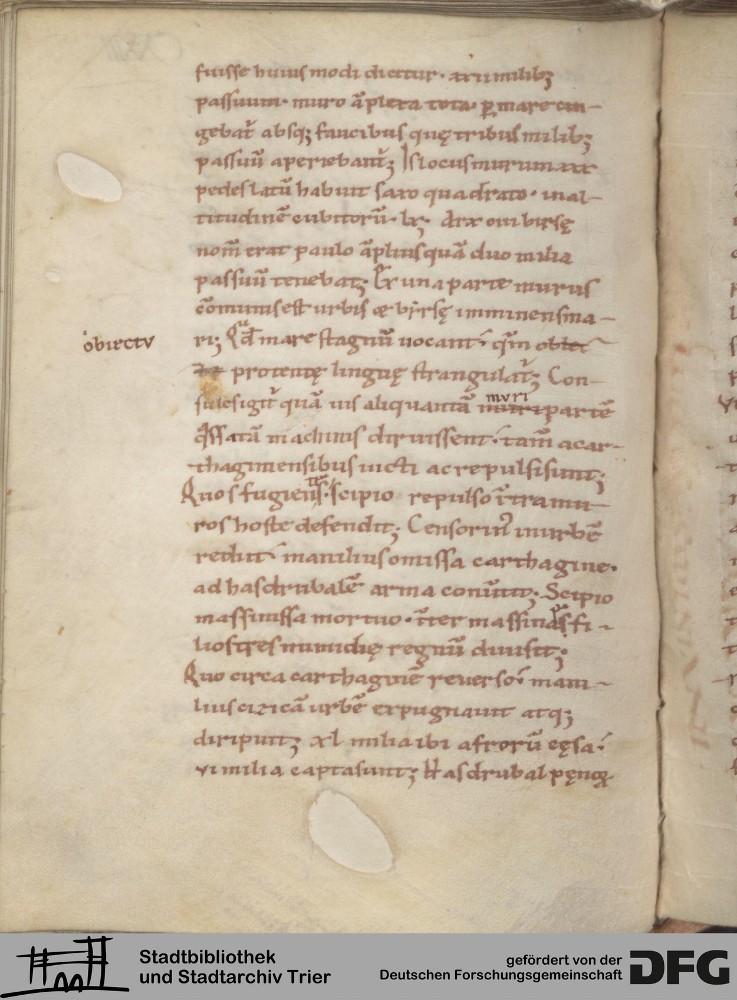 fuisse huiusmodi dicitur. xxii milibꝫ
passuum. muro āplexa tota. ꝑ mare cin-
gebat̄ absqꝫ faucibus quę tribus milibꝫ
passuū aperiebant̄; Is locus murum xxx
pedes latū habuit saxo quadrato. in al-
titudinē cubitorū. lx. Arx cui birsę
nom̄ erat paulo āplius quā duo milia
passuū tenebat; Ex una parte murus
cōmunis est urbis & birsę imminens ma-
ri; Qd̄ mare stagnū uocant. qm̄ obiec
obiectv
te protentę linguę strangulat̄; Con-
sules igit̄ quā uis aliquantā muri partē
mvri
q̄ssatā machinis diruissent. tam̄ a car-
thaginiensibus uicti ac repulsi sunt;
Quos fugiens. scipio repulso īntra mu-
ros hoste defendit; Censorinꝰ in urbē
rediit. manilius omissa carthagine.
ad hasdrubalē arma conūtit; Scipio
massinissa mortuo. īter massinissę fi-
lios tres numidię regnū diuisit;
Quo circa carthaginē reuerso. mani-
lius cizicā urbē expugnauit atqꝫ
diripuit; xl milia ibi afrorū cęsa.
vi milia capta sunt; Hasdrubal pęnoꝝ
Stadtbibliothek
und Stadtarchiv Trier
gefördert von der
Deutschen Forschungsgemeinschaft
DFG